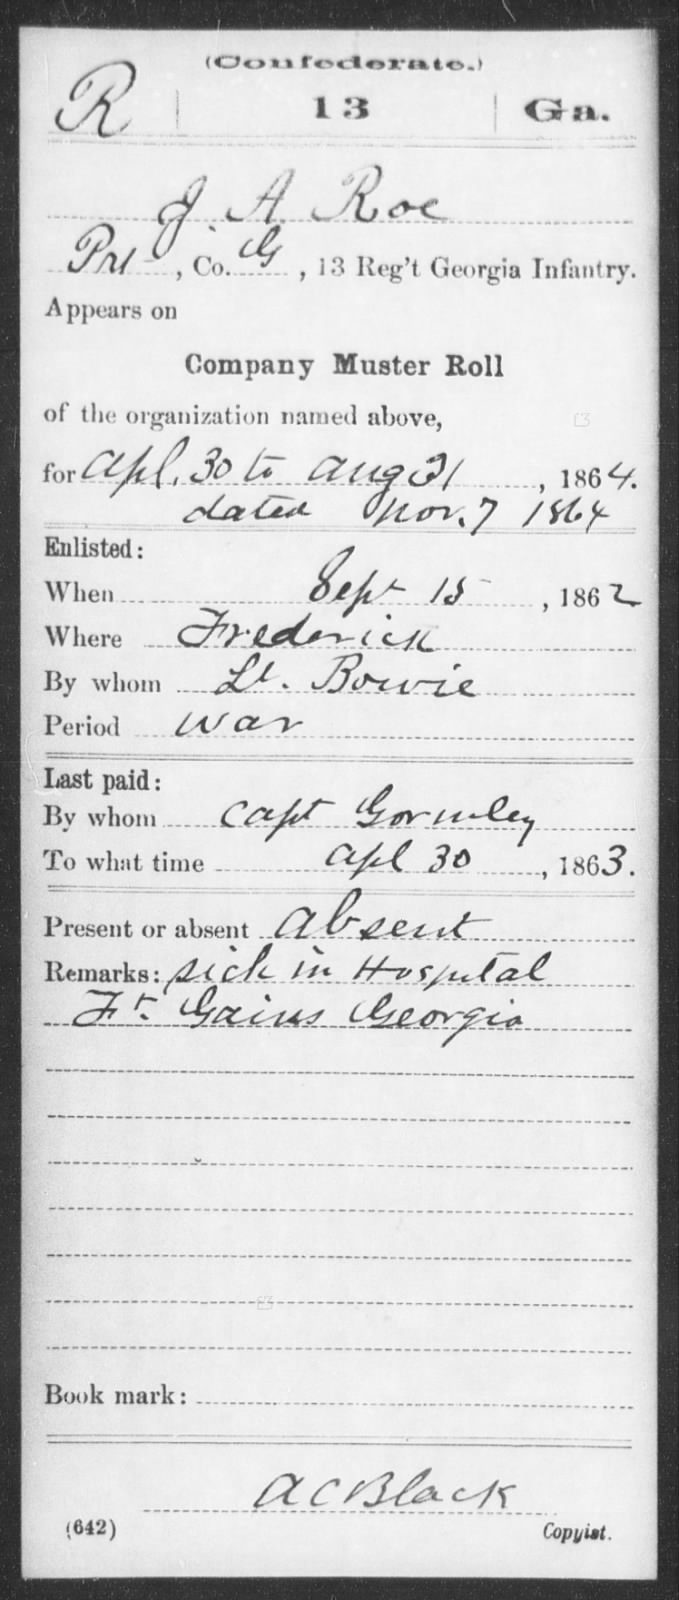 (Confederate.)
R | 13 | Ga.
J. A. Roe
Pvt, Co. G, 13 Reg't Georgia Infantry.
Appears on
Company Muster Roll
of the organization named above,
for Apl. 30 to Aug 31, 1864.
dated Nov. 7 1864
Enlisted:
When Sept 15, 1862
Where Frederick
By whom Lt. Bowie
Period War
Last paid:
By whom Capt Gormley
To what time Apl 30, 1863.
Present or absent Absent
Remarks: Sick in Hospital
Ft. Gains Georgia
Book mark:
A C Black
(642) Copyist.